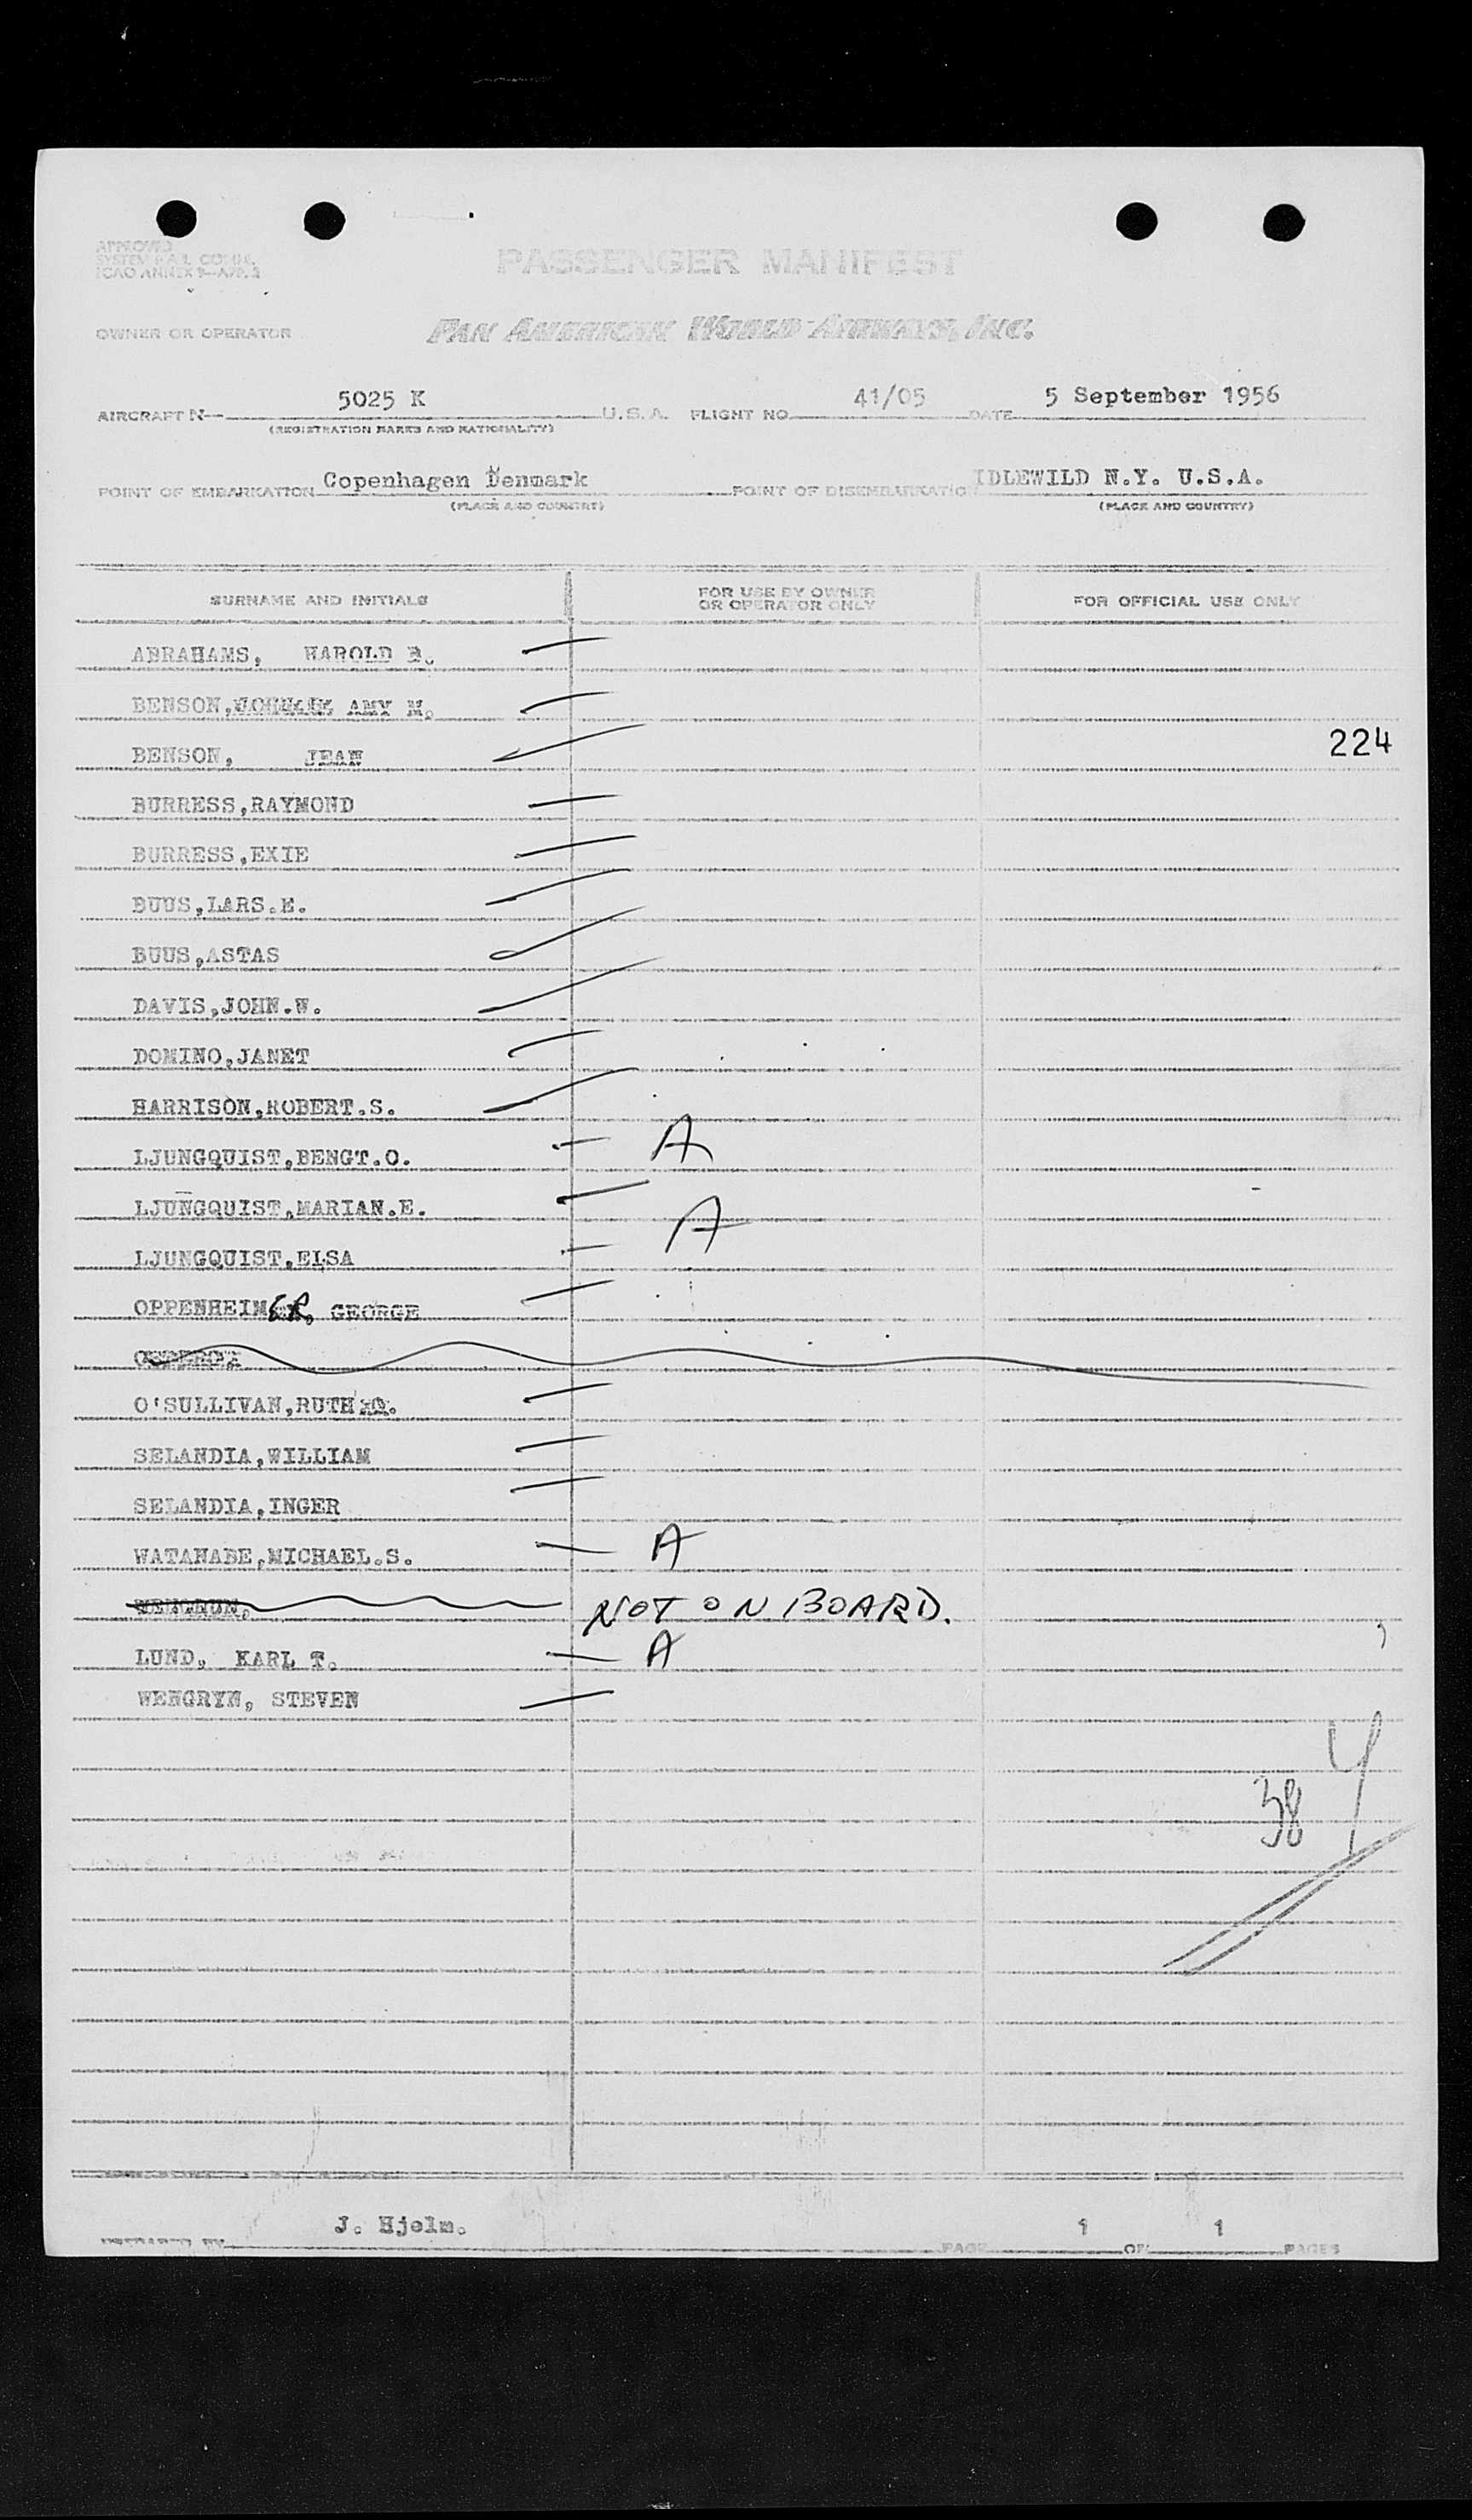 APPROVED
SYSTEM
ICAO ANNEX 9—APP. 3
PASSENGER MANIFEST
OWNER OR OPERATOR PAN AMERICAN WORLD AIRWAYS, INC.
AIRCRAFT N— 5025 K U.S.A. FLIGHT NO. 41/05 DATE 5 September 1956
(REGISTRATION MARKS AND NATIONALITY)
POINT OF EMBARKATION Copenhagen Denmark POINT OF DISEMBARKATION IDLEWILD N.Y. U.S.A.
(PLACE AND COUNTRY) (PLACE AND COUNTRY)
SURNAME AND INITIALS FOR USE BY OWNER OR OPERATOR ONLY FOR OFFICIAL USE ONLY
ABRAHAMS, HAROLD
BENSON, AMY M.
BENSON, JEAN 224
BURRESS,RAYMOND
BURRESS,EXIE
BUUS,LARS.E.
BUUS,ASTAS
DAVIS,JOHN.W.
DOMINO,JANET
HARRISON,ROBERT.S.
LJUNGQUIST,BENGT.O. A
LJUNGQUIST,MARIAN.E. A
LJUNGQUIST,ELSA
OPPENHEIMER, GEORGE
O'SULLIVAN,RUTH
SELANDIA,WILLIAM
SELANDIA,INGER
WATANABE,MICHAEL.S. A
NOT ON BOARD.
LUND, KARL T. A
WENGRYN, STEVEN
38
J. Hjelm.
PREPARED BY PAGE 1 OF 1 PAGES